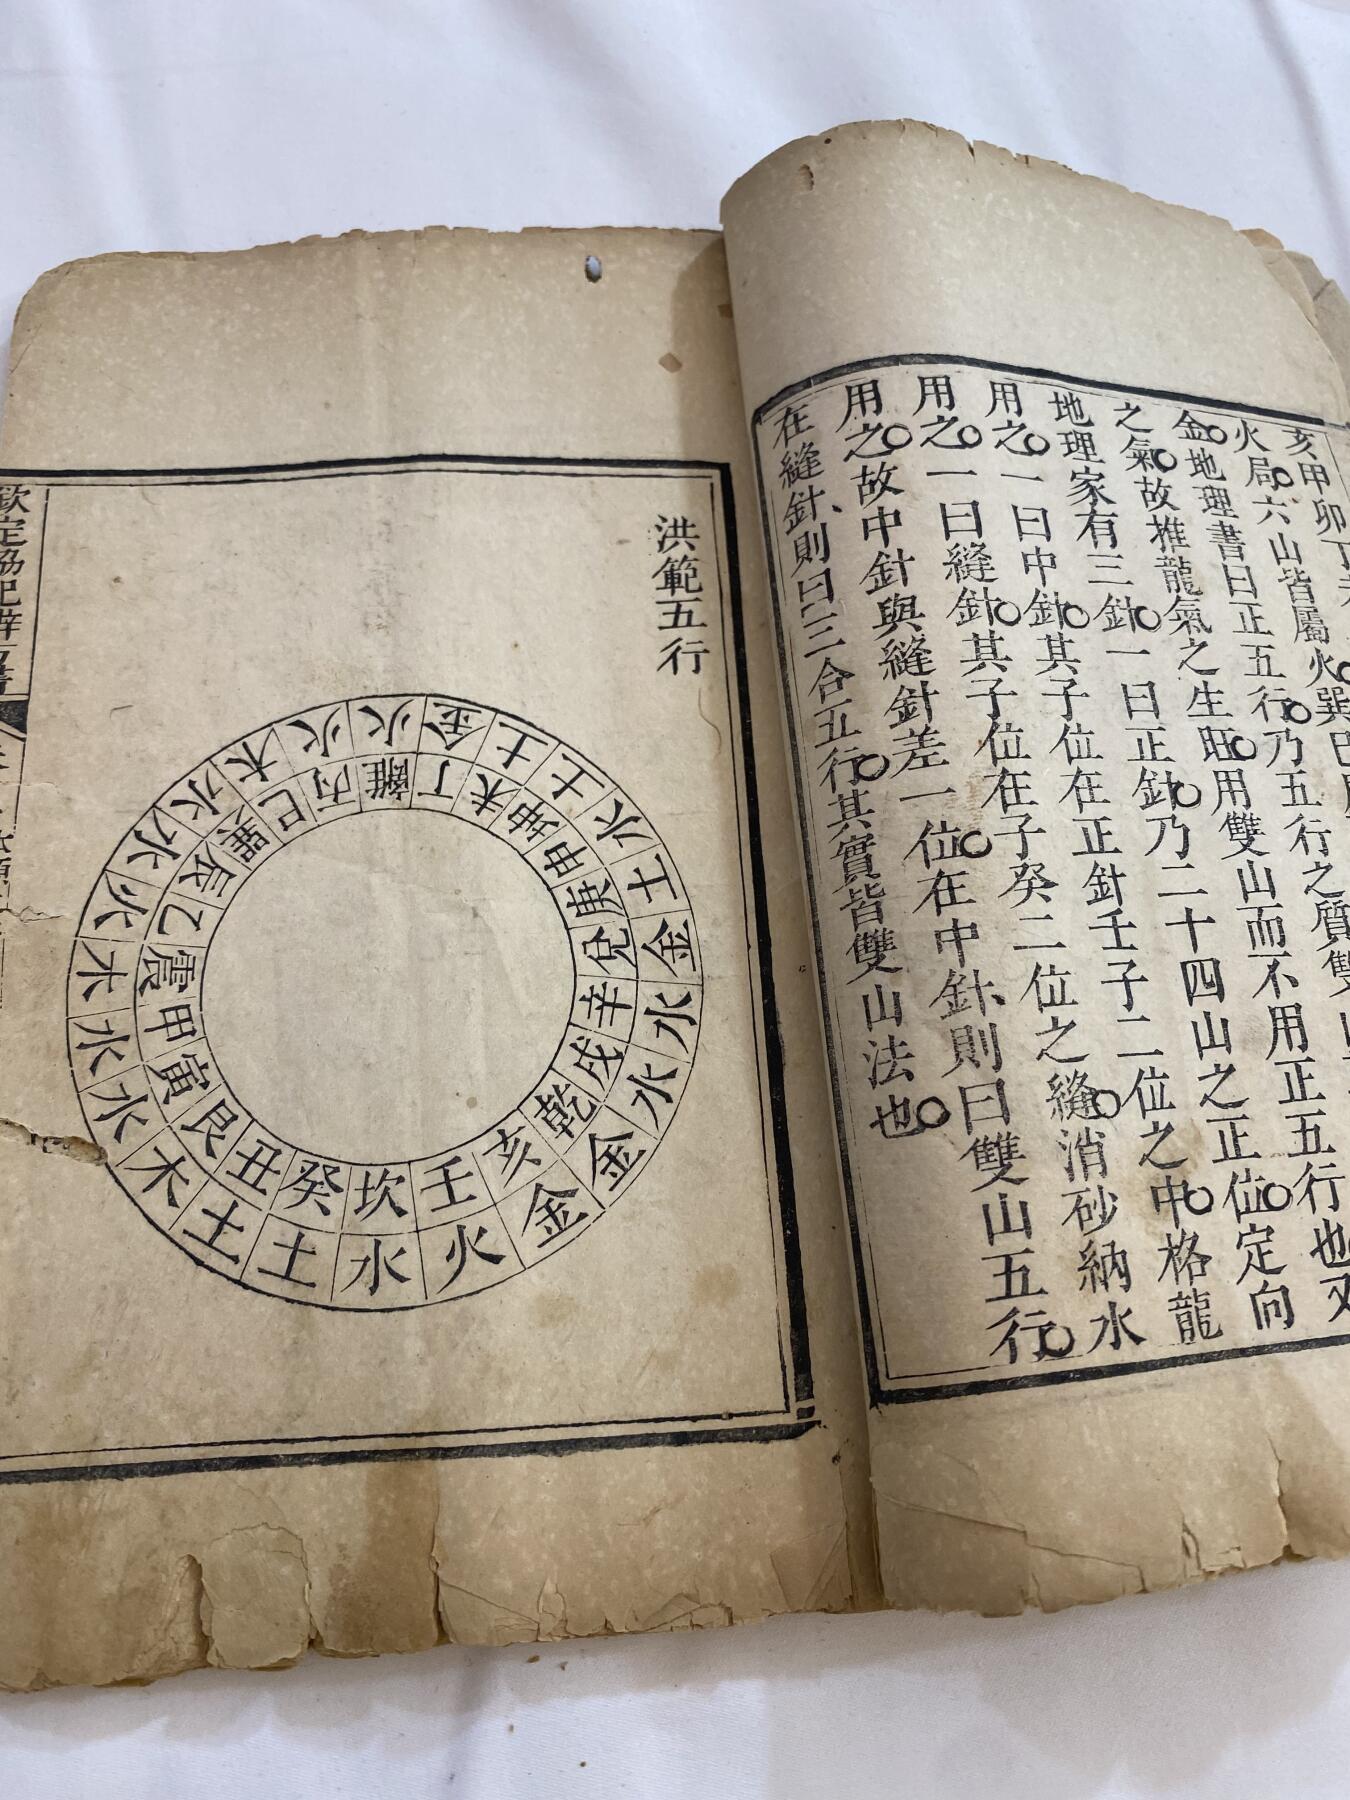 亥甲卯丁
火局六山皆屬火巽巳
金地理書曰正五行乃五行之質雙山
之氣故推龍氣之生旺用雙山而不用正五行也又
地理家有三針一曰正針乃二十四山之正位定向
用之一曰中針其子位在正針壬子二位之中格龍
用之一曰縫針其子位在子癸二位之縫消砂納水
用之故中針與縫針差一位在中針、則曰雙山五行
在縫針、則曰三合五行其實皆雙山法也
洪範五行
火金土土水土金水水金金火水土土木水水木火水水木火
離丁未坤申庚兌辛戌乾亥壬坎癸丑艮寅甲震乙辰巽巳丙
欽定協紀辨方書